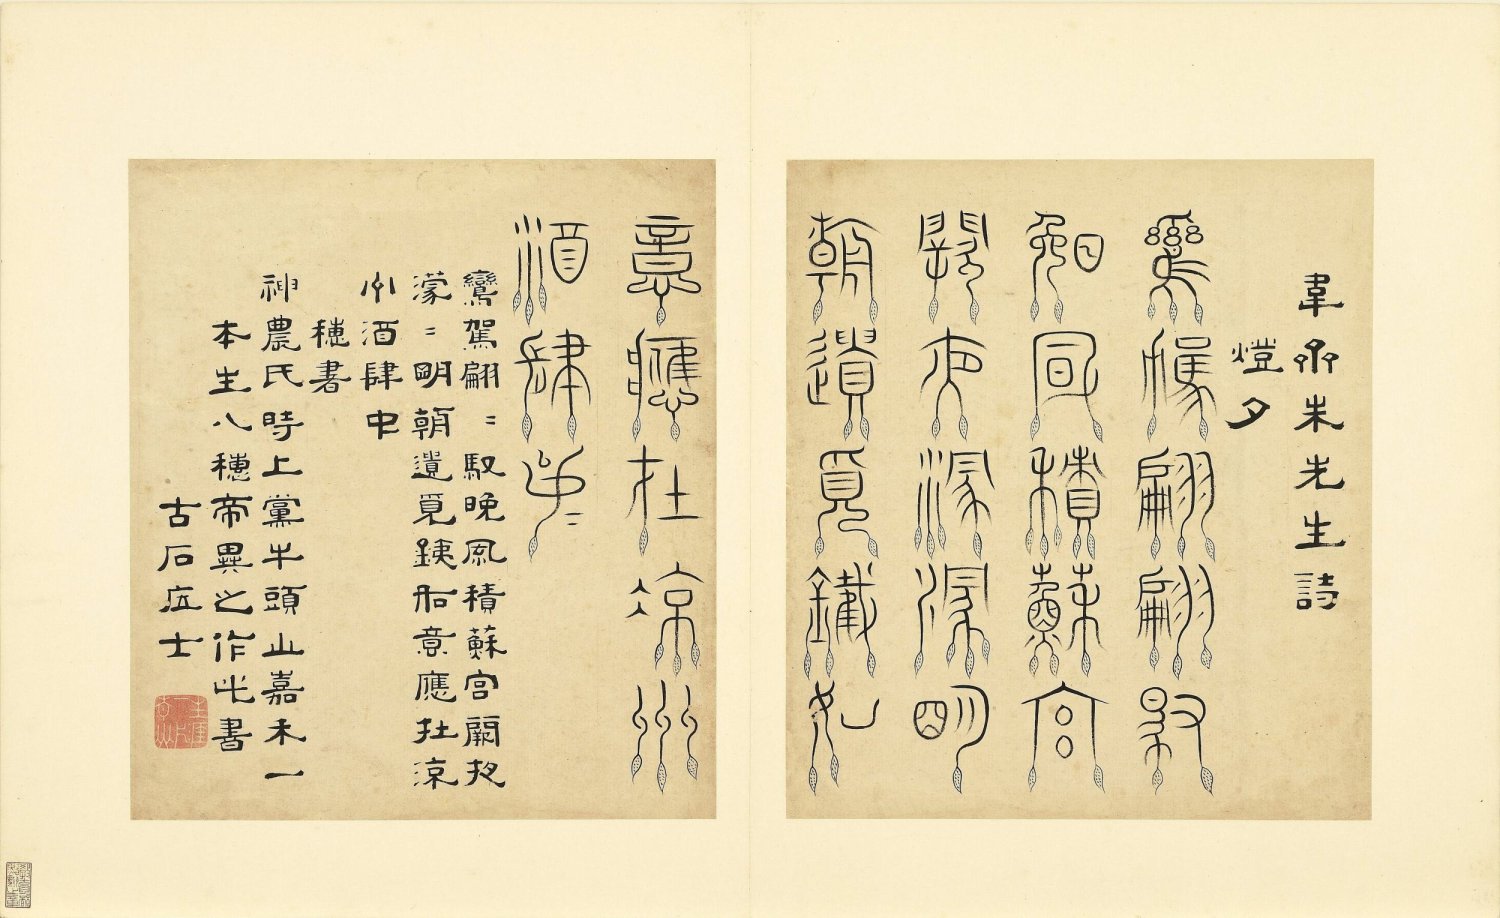 韋齋朱先生詩
燈夕
鸞駕翩翩馭
晚風積蘇宮
闕夜濛濛明
朝遺覓鐵如
意應在涼州
酒肆中
鸞駕翩〻馭晚風積蘇宮闕夜
濛〻明朝遺覓鐵如意應在涼
州酒肆中
穗書
神農氏時上黨牛頭山嘉禾一
本生八穗帝異之作此書
古石居士